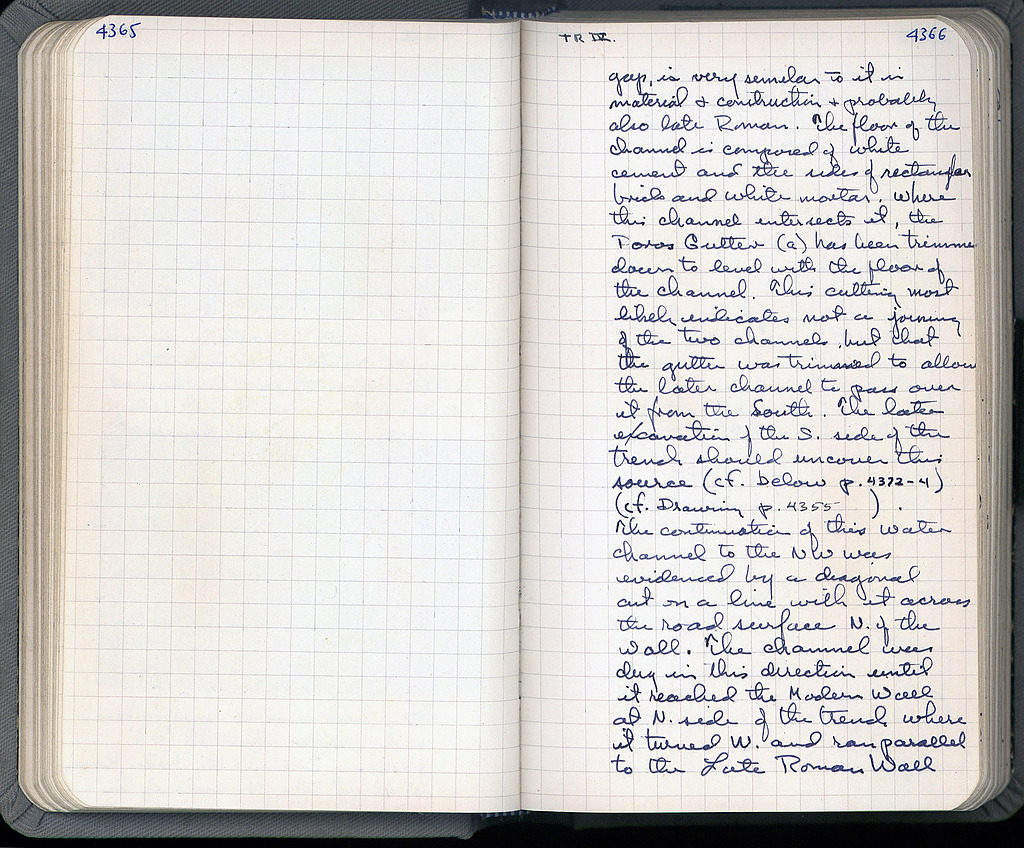 4365
TR IV.
4366
gap, is very semelar to it in
material & construction & probably
also late Roman. The floor of the
channel is composed of white
cement and the sides of rectangular
brick and white mortar. Where
this channel intersects it, the
Poros Gutter (a) has been trimme
down to level with the floor of
the channel. This cutting most
likely indicates not a joining
of the two channels, but that
the gutter was trimmed to allow
the later channel to pass over
it from the South. The later
excavation of the S. side of the
trench should uncover this
source (cf. below p. 4372-4)
(cf. Drawing p. 4355 ) .
The continuation of this water
channel to the NW was
evidenced by a diagonal
cut on a line with it across
the road surface N. of the
Wall. The channel was
dug in this direction until
it reached the Modern Wall
at N. side of the trench where
it turned W. and ran parallel
to the Late Roman Wall